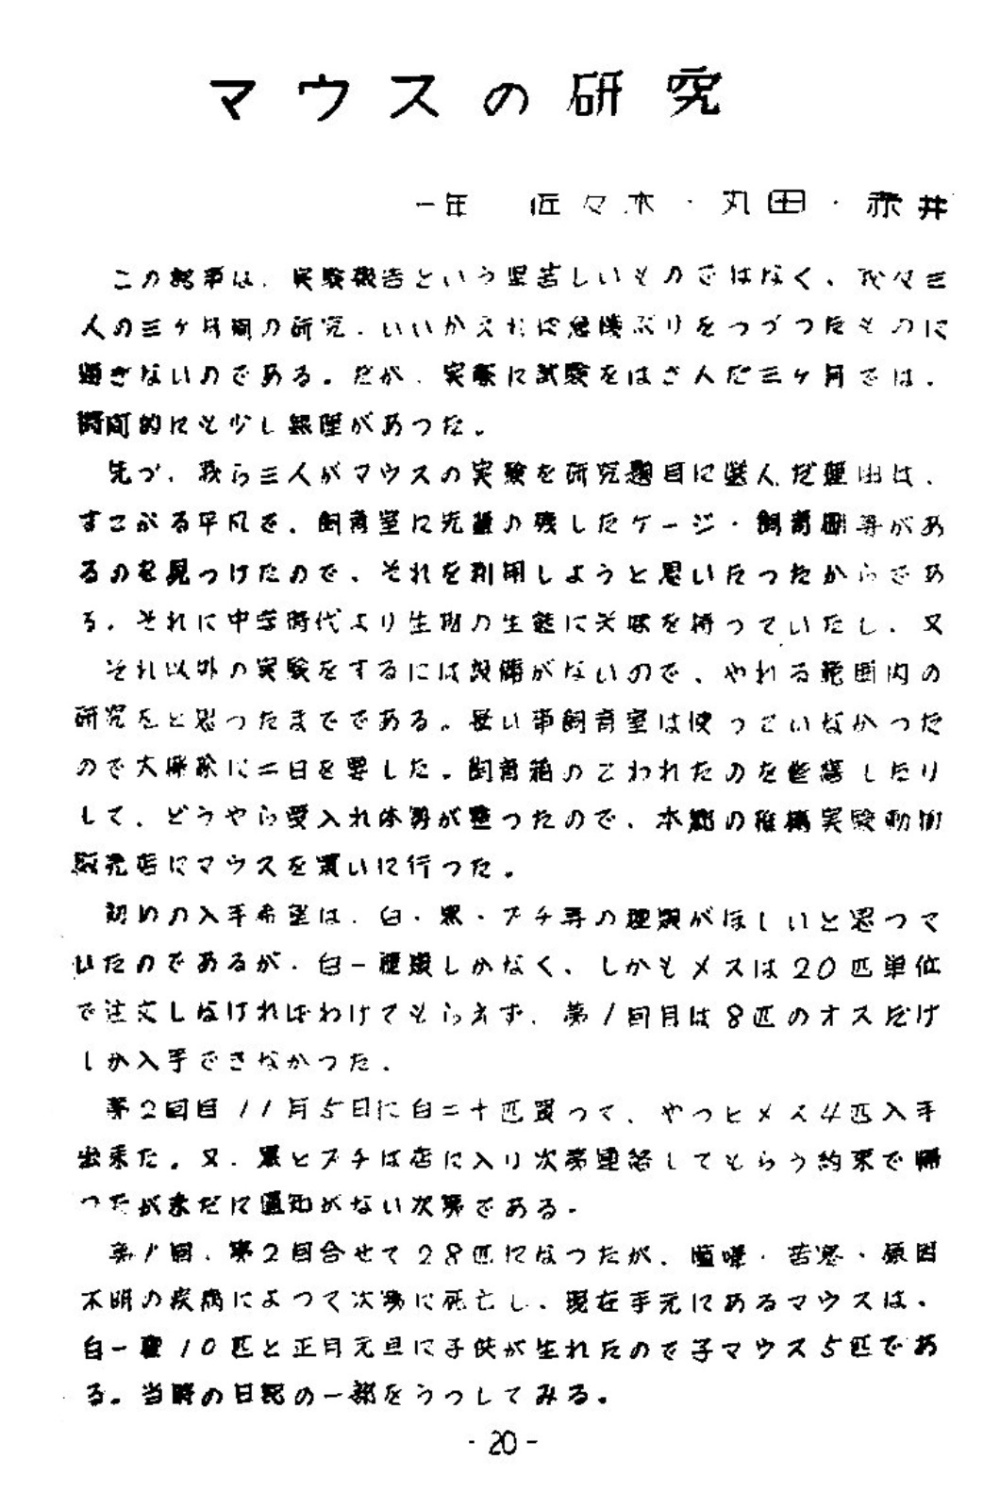 マウスの研究
一年　佐々木・丸田・赤井
この記事は、実験報告という堅苦しいものではなく、我々三
人の三ヶ月間の研究、いいかえれば危機ぶりをつづつたものに
過ぎないのである。だが、実際に試験をはさんだ三ヶ月では、
時間的にも少し無理があつた。
先づ、我ら三人がマウスの実験を研究題目に選んだ理由は、
すこぶる平凡で、飼育室に先輩の残したケージ・飼育棚等があ
るのを見つけたので、それを利用しようと思いたつたからであ
る。それに中学時代より生物の生態に興味を持つていたし、又
それ以外の実験をするには設備がないので、やれる範囲内の
研究をと思つたまでである。長い事飼育室は使つていなかつた
ので大掃除に二日を要した。飼育箱のこわれたのを修繕したり
して、どうやら受入れ体勢が整つたので、本郷の 実験動物
販売店にマウスを買いに行つた。
初めの入手希望は、白・黒・ブチ等の種類がほしいと思つて
いたのであるが、白一種類しかなく、しかもメスは20匹単位
で注文しなければわけてもらえず、第1回目は8匹のオスだけ
しか入手できなかつた。
第2回目11月5日に白二十匹買つて、やつとメス4匹入手
出来た。又、黒とブチは店に入り次第連絡してもらう約束で帰
つたが未だに通知がない次第である。
第1回、第2回合せて28匹になつたが、喧嘩・苦寒・原因
不明の疾病によつて次第に死亡し、現在手元にあるマウスは、
白一種10匹と正月元旦に子供が生れたので子マウス5匹であ
る。当時の日記の一部をうつしてみる。
-20-